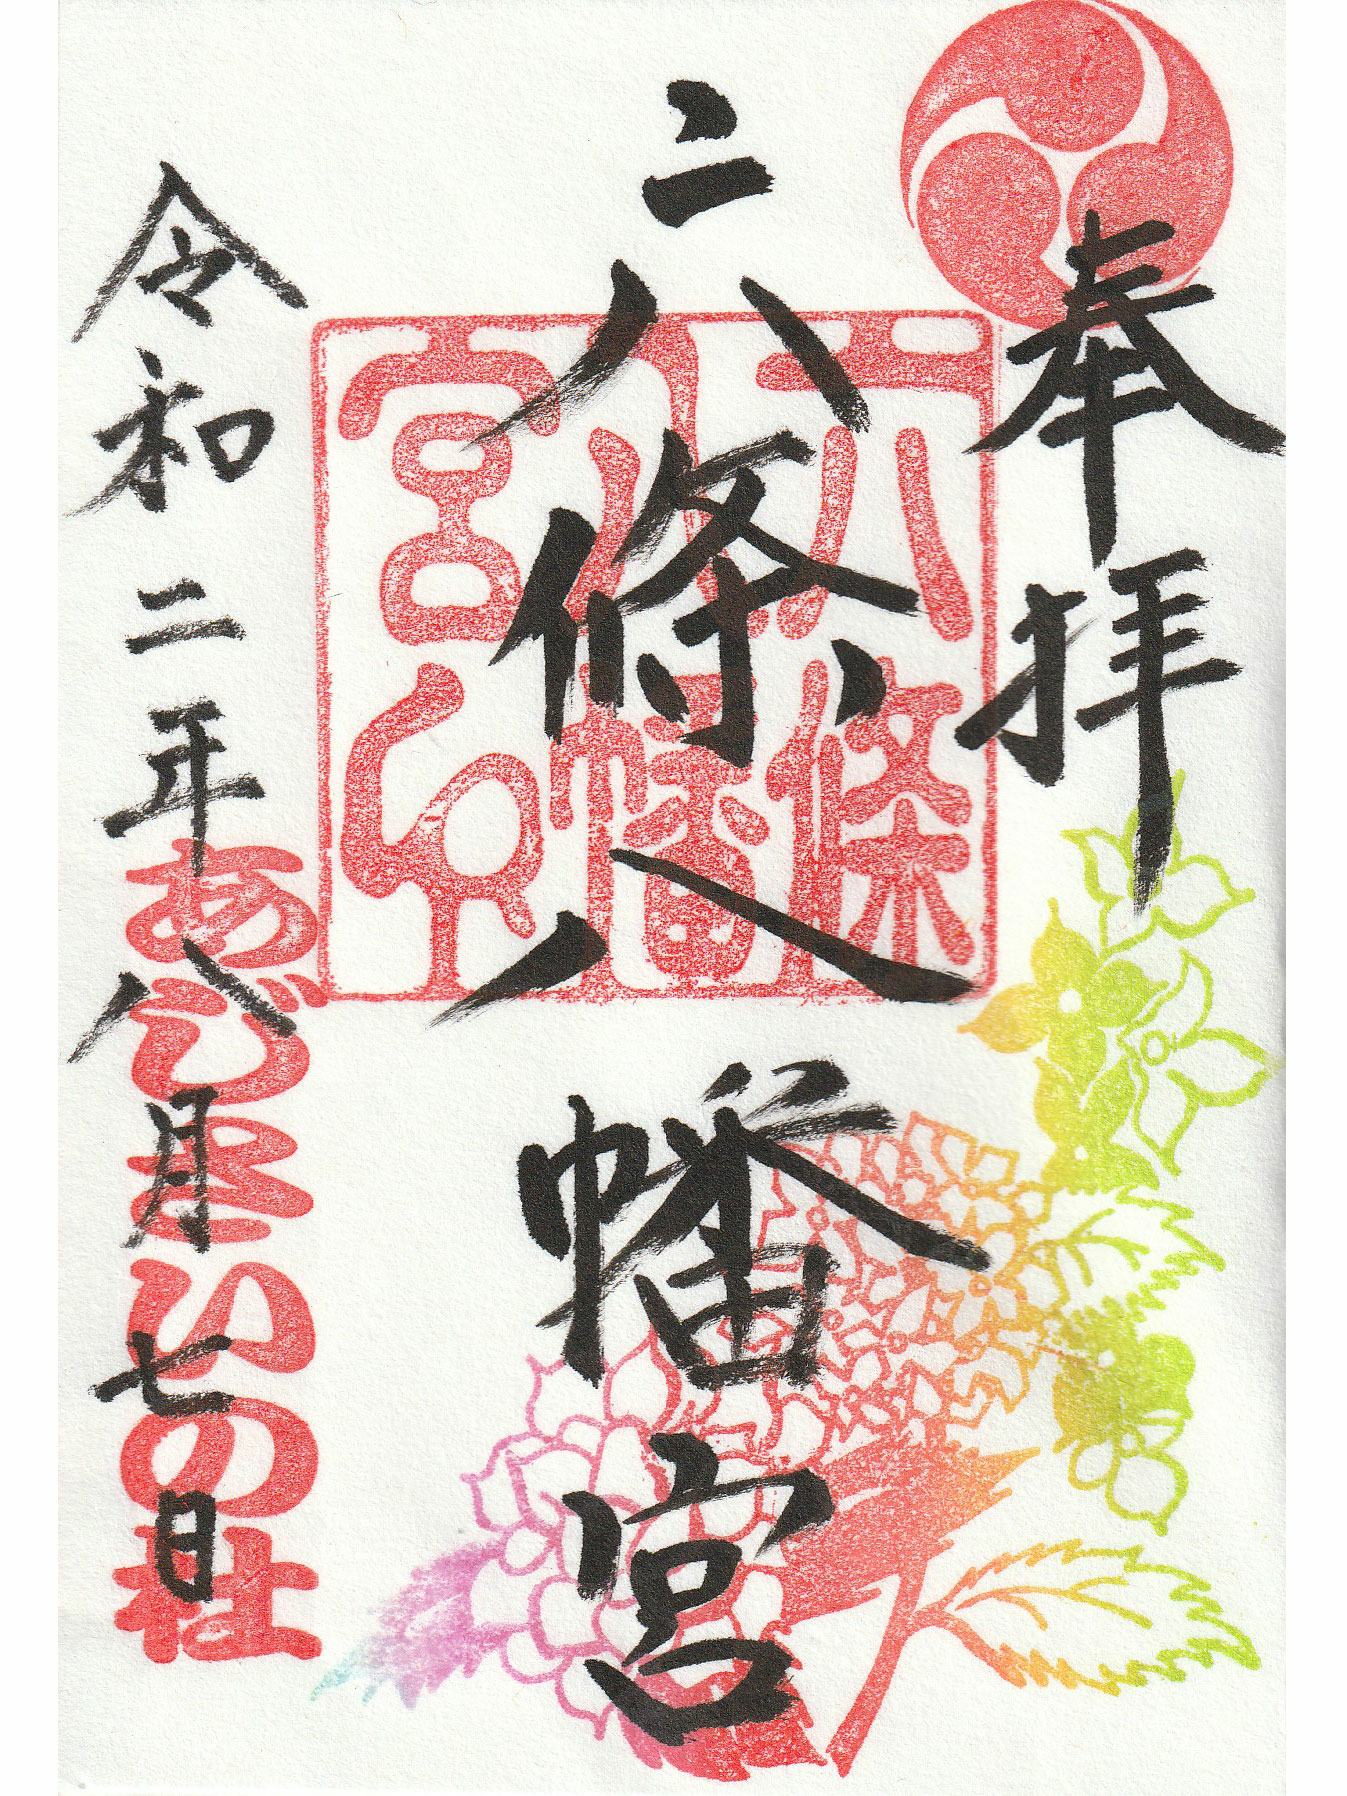 奉拝
六條八幡宮
六條八幡宮印
令和二年八月七日
あじさいの社